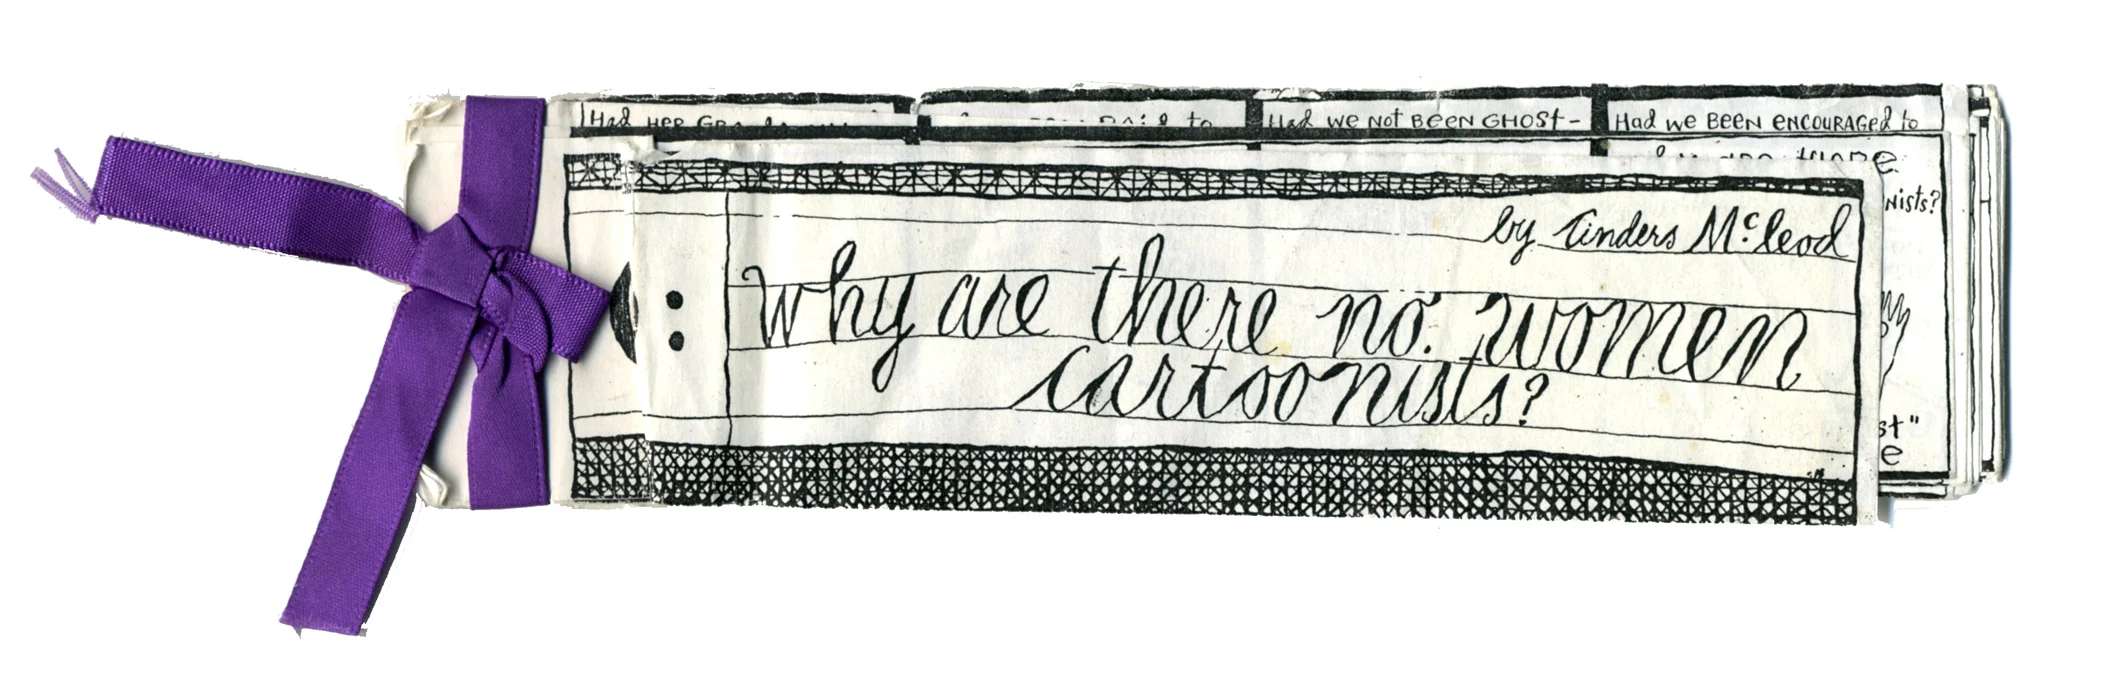 Had HER
paid to
Had WE NOT BEEN GHOST-
Had WE BEEN ENCOURAGEd to
are there
nists?
by Cinders McLeod
: Why are there no women
cartoonists?
st"
e